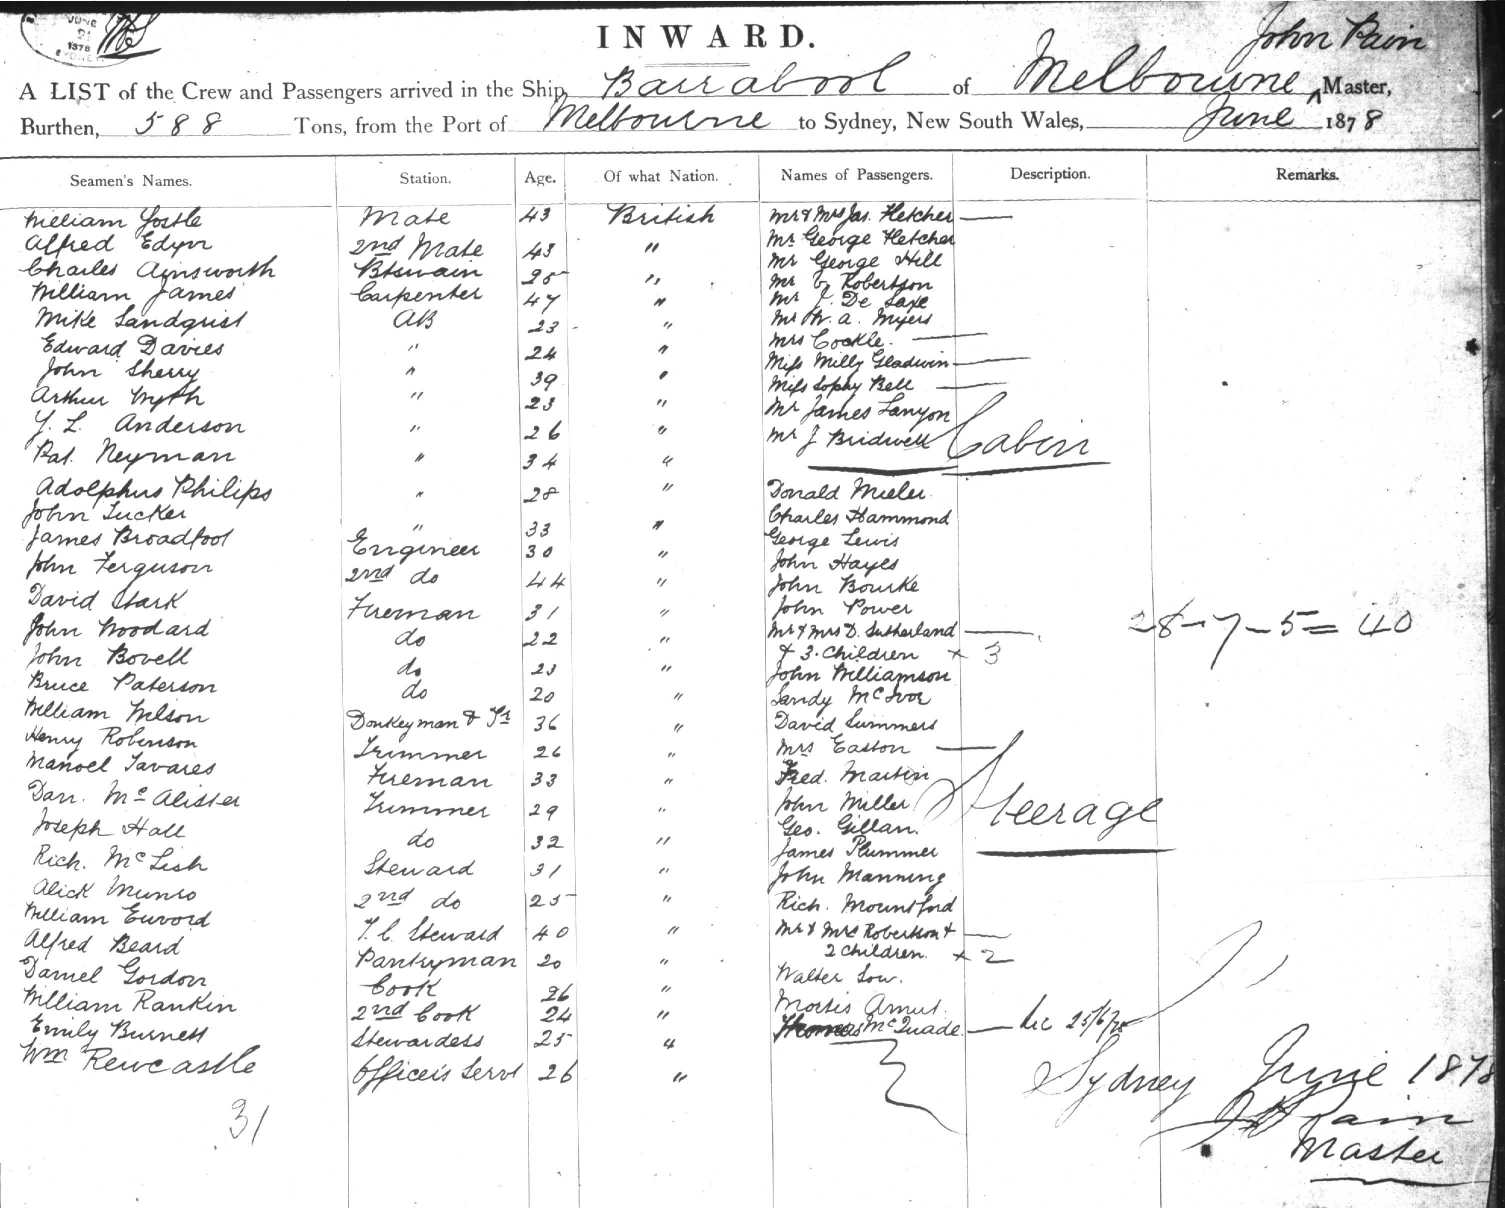 JUNE
21
1878
INWARD.
John Pain
A LIST of the Crew and Passengers arrived in the Ship Barrabool of Melbourne Master,
Burthen, 588 Tons, from the Port of Melbourne to Sydney, New South Wales, June 1878
Seamen's Names. Station. Age. Of what Nation. Names of Passengers. Description. Remarks.
William Mate 43 British Mr & Mrs Jas. Fletcher —
Alfred Edyvr 2nd Mate 43 " Mr George Fletcher
Charles Ainsworth Btswain 25 " Mr George Hill
William James Carpenter 47 " Mr C. Robertson
Mike Landqrist AB 23 " Mr J. De Saxe
Edward Davies " 24 " Mr W. A. Myers
John Sherry " 39 " Mrs Cockle. —
Arthur " 23 " Miss Milly Gladwin —
Y. L. Anderson " 26 " Miss Sophy Bell —
Pat. Neyman " 34 " Mr James Lanyon
Adolphus Philips " 28 " Mr J Bridwell
Cabin
John Tucker " 33 " Donald
James Broadfoot Engineer 30 " Charles Hammond
John Ferguson 2nd do 44 " George Lewis
David Stark Fireman 31 " John Hayes
John Woodard do 22 " John Bourke
John Bovell do 23 " John Power
Bruce Paterson do 20 " Mr & Mrs D. Sutherland —
& 3. Children + 3
28 - 7 - 5 = 40
William Wilson Donkeyman & Fr 36 " John Williamson
Henry Robinson Trimmer 26 " Sandy McIvor
Manoel Tavares Fireman 33 " David Summers
Dan. McAlister Trimmer 29 " Mrs Easton —
Joseph Hall do 32 " Fred. Martin
Rich. McLish Steward 31 " John Miller
Alick Munro 2nd do 25 " Geo. Gillan.
Steerage
William Steward 40 " James Plummer
Alfred Beard Pantryman 20 " John Manning
Daniel Gordon Cook 26 " Rich. Mountford
William Rankin 2nd Cook 24 " Mr & Mrs Robertson & —
2 Children. + 2
Emily Burnett Stewardess 25 " Walter Low.
Wm Rewcastle Officers Servt 26 "
McQuade — 25/6/78
31
Sydney June 1878
Pain
Master